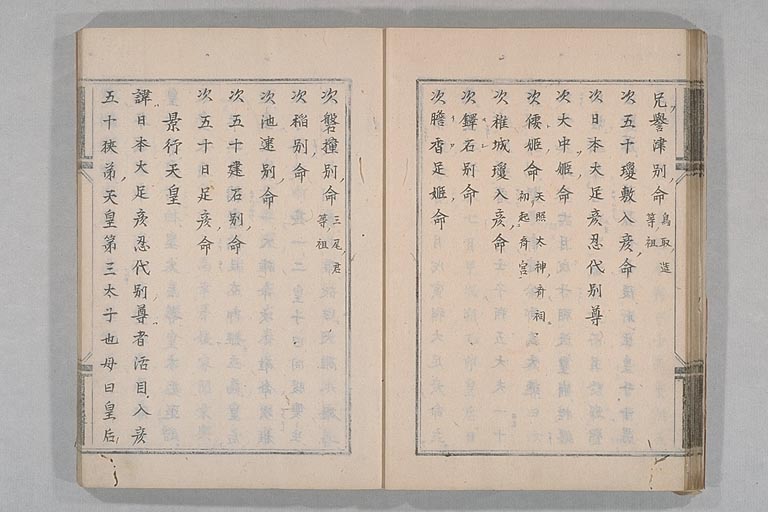 兄譽津別命 鳥取造等祖
次五十瓊敷入彦命
次日本大足彦忍代別尊
次大中姫命
次倭姫命 天照大神斎祠初起斎宮
次稚城瓊彦命
次鐸石別命
次膽香足姫命
次磐撞別命 三尾君等祖
次稲別命
次池速別命
次五十建石別命
次五十日足彦命
景行天皇
諱日本大足彦忍代別尊者活目入彦
五十狭茅天皇第三太子也母曰皇后